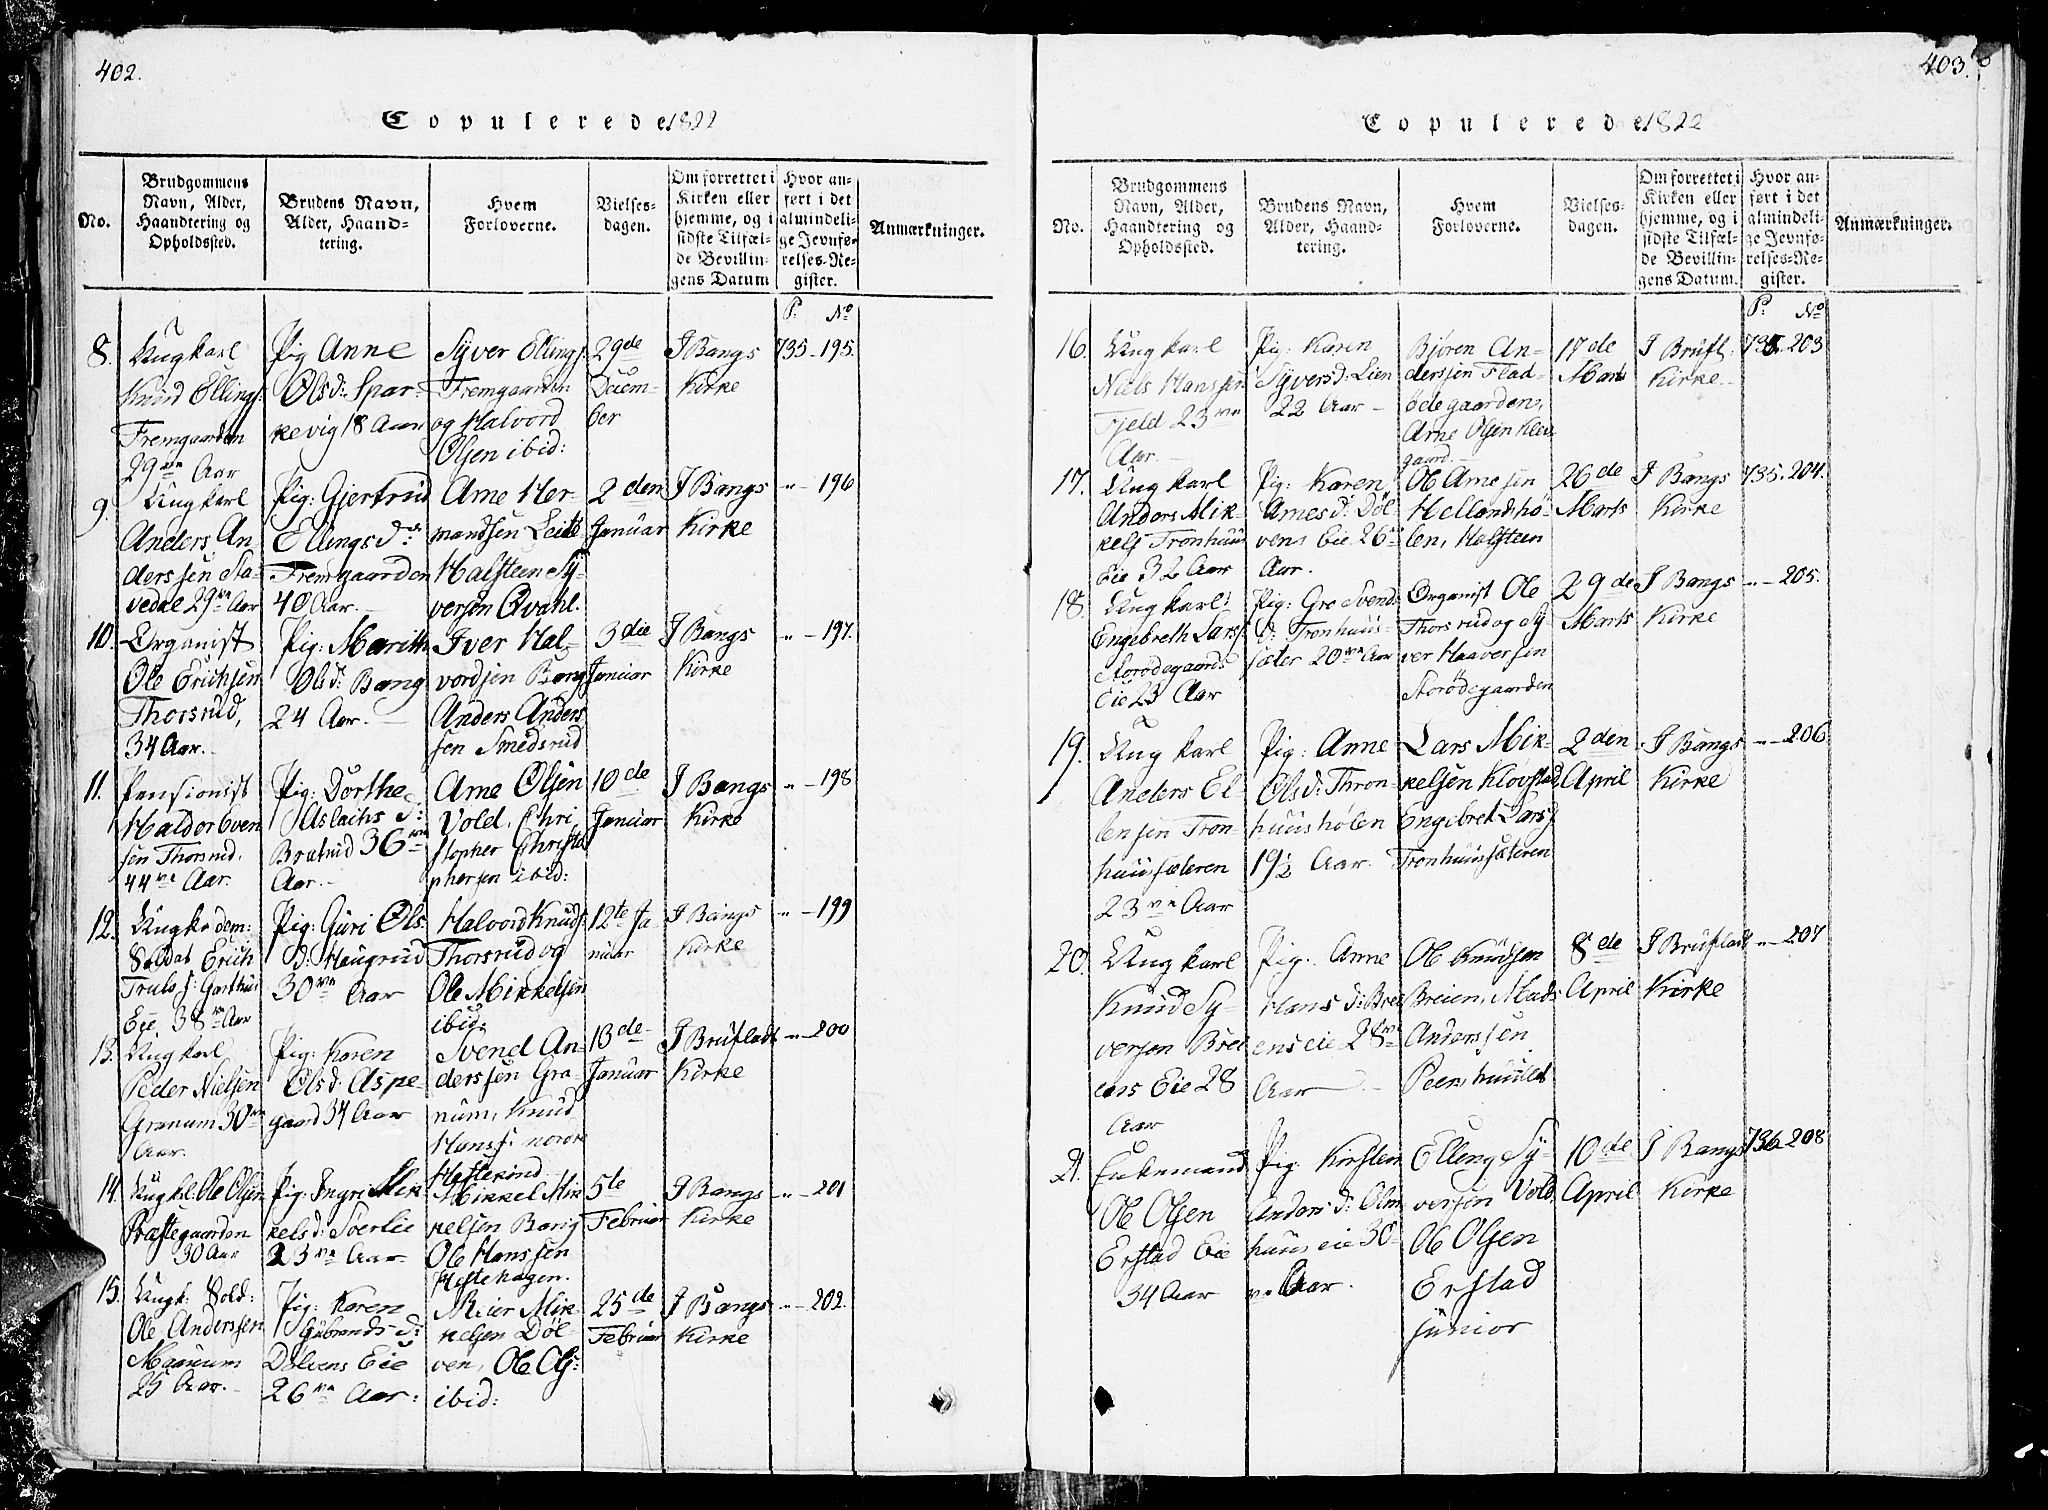 402.
Copulerede 1822
No.
Brudgommens
Navn, Alder,
Haandtering og
Opholdssted.
Brudens Navn,
Alder, Haand-
tering.
Hvem
Forloverne.
Vielses-
dagen.
Om forrettet i
Kirken eller
hjemme, og i
sidste Tilfæl-
de Bevillin-
gens Datum
Hvor an-
ført i det
almindeli-
ge Jevnfø-
relses-Re-
gister.
Anmærkninger.
P. No
8.
Ungkarl
Knud Ellings.
Fremgaarden
29ve Aar
Pig Anne
Olsd: Spar-
kevig 18 Aar
Syver Ellings
Fremgaarden
og Halvord
Olsen ibid:
29de
Decem-
ber
I Bangs
Kirke
735-195.
9.
Ungkarl
Anders An-
derssen Sta-
vedal 29ve Aar
Pig: Gjertrud
Ellingsd:
Fremgaarden
40 Aar.
Arne Her-
mandsen Leite
Halsteen Sy-
versen Qvahl.
2den
Januar
I Bangs
Kirke
"-196
10.
Organist
Ole Erichsen
Thorsrud,
34 Aar.
Pig: Marith
Olsd: Bang
24 Aar.
Iver Hal-
vordsen Bang
Anders Anders
sen Smedsrud
3die
Januar
I Bangs
Kirke
"-197.
11.
Pensionist
Haldor Even
sen Thorsrud.
44ve Aar.
Pig: Dorthe
Aslachs d:
Bratrud 36ve
Aar.
Arne Olsen
Vold, Chri
stopher Christo
phersen ibid:
10de
Januar
I Bangs
Kirke
"-198
12.
Ungka dem:
Soldat Erich
Truls s: Garthus
Eie, 38ve Aar
Pig: Guri Ols
d: Haugrud
30ve Aar
Halvord Knuds
Thorsrud og
Ole Mikkelsen
ibid:
12te Ja
nuar
I Bangs
Kirke
"-199
13.
Ungkarl
Peder Nielsen
Granum 30ve
Aar.
Pig: Karen
Olsd: Aspe-
gaard 34 Aar
Svend An-
derssen Gra-
num, Knud
Hanss: nordre
Hettekind
13de
Januar
I Brufladt
Kirke
"-200
14.
Ungkl. Ole Olsen
Præstegaarden
30 Aar
Pig: Ingri Mik
kelsd: Sverlie
23ve Aar.
Mikkel Mik
kelsen Bang
Ole Hanssen
Hestehagen.
5te
Februar
I Bangs
Kirke
"-201
15.
Ungk: Sold:
Ole Anderssen
25 Aar.
Pig: Karen
Gubrands d:
Dølvens Eie
26ve Aar:
Meier Mik-
kelsen Døl-
ven, Ole Ols:
ibid:
25de
Februar
I Bangs
Kirke
"-202.
403.
Copulerede 1822
No.
Brudgommens
Navn, Alder,
Haandtering og
Opholdssted.
Brudens Navn,
Alder, Haand-
tering.
Hvem
Forloverne.
Vielses-
dagen.
Om forrettet i
Kirken eller
hjemme, og i
sidste Tilfæl-
de Bevillin-
gens Datum.
Hvor an-
ført i det
almindeli-
ge Jevnfø-
relses-Re-
gister.
Anmærkninger.
P. No
16.
Ungkarl
Niels Hanssen
Fjeld 23ve
Aar.
Pig: Karen
Syversd: Lien
22 Aar
Bjøren An-
derssen Flad-
ødegaarden,
Arne Olsen Klev
gaard.
17de
Marts
I Brufl.
Kirke
735.203
17.
Ungkarl
Anders Mik-
kels Tronhuus
Eie 32 Aar
Pig: Karen
Arnes d: Døl
vens Eie 26ve
Aar.
Ole Arnesen
Hellandhø-
len, Halsteen
26de
Marts
I Bangs
Kirke
735.204.
18.
Ungkarl
Engebreth Larss
Storødegaards
Eie 23 Aar
Pig: Gro Svends
d: Tronhuus-
sæter 20ve Aar
Organist Ole
Thorsrud og Sy
ver Haaversen
Storødegaarden
29de
Marts
I Bangs
Kirke
"-205.
19.
Ungkarl
Anders El-
lensen Tron-
huussæteren
23ve Aar
Pig: Anne
Olsd: Thron-
huushølen
19½ Aar.
Lars Mik-
kelsen Klovstad
Engebret Larss
Tronhuussæteren
2den
April
I Bangs
Kirke
"-206
20.
Ungkarl
Knud Sy-
versen Brei
ens Eie 28
Aar
Pig: Anne
Hans d: Brei
ens eie 28ve
Aar
Ole Knudsen
Breien, Mads
Anderssen
8de
April
I Brufladt
Kirke
"-207
21.
Enkemand
Ole Olsen
Erstad Eie
34 Aar
Pig: Kirsten
Anders d: Olm
huus eie 30
ve Aar.
Elling Sy-
versen Vold,
Ole Olsen
Erstad
junior
10de
April
I Bangs
Kirke
736-208